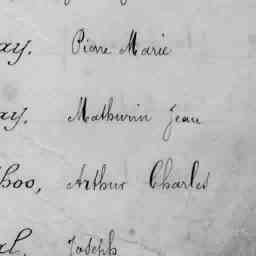 ay. Pierre Marie
ay. Mathurin Jean
hoo, Arthur Charles
al. Joseph